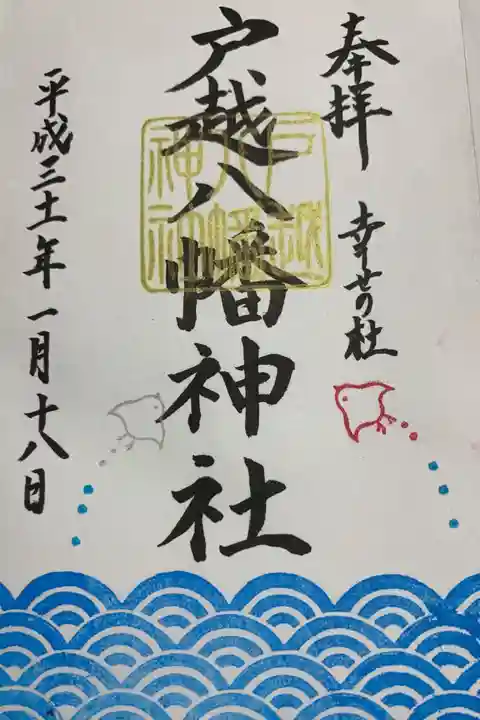 奉拝
幸せの杜
戸越八幡神社
戸越
八幡
神社
平成三十一年一月十八日